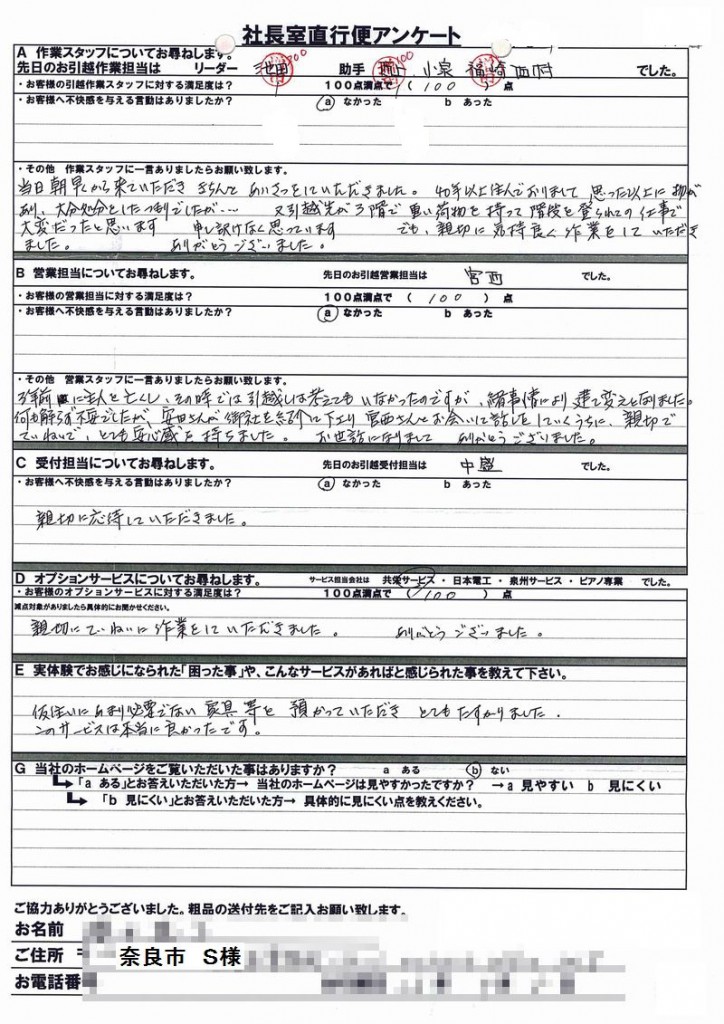 社長室直行便アンケート
A 作業スタッフについてお尋ねします。
先日のお引越作業担当は リーダー 池田 助手 小泉 福崎 西村 でした。
・お客様の引越作業スタッフに対する満足度は? 100点満点で ( 100 ) 点
・お客様へ不快感を与える言動はありましたか? a なかった b あった
・その他 作業スタッフに一言ありましたらお願い致します。
当日朝早くから来ていただき きちんと あいさつをしていただきました。 40年以上住んでおりまして 思った以上に物が
あり、大分処分としたつもりでしたが… 又引越先が3階で重い荷物を持って階段を登られての仕事で
大変だったと思います 申し訳けなく思っています でも、親切に気持良く作業をしていただき
ました。 ありがとうございました。
B 営業担当についてお尋ねします。 先日のお引越営業担当は 宮西 でした。
・お客様の営業担当に対する満足度は? 100点満点で ( 100 ) 点
・お客様へ不快感を与える言動はありましたか? a なかった b あった
・その他 営業スタッフに一言ありましたらお願い致します。
3年前に主人を亡くし、その時では引越しは考えてもいなかったのですが、諸事情により建て変えとなりました。
何も解らず不安でしたが、安田さんが御社を紹介下さり 宮西さんとお会いして話をしていくうちに、親切で
ていねいで、とても安心感を持ちました。 お世話になりまして ありがとうございました。
C 受付担当についてお尋ねします。 先日のお引越受付担当は 中盛 でした。
・お客様へ不快感を与える言動はありましたか? a なかった b あった
親切に応待していただきました。
D オプションサービスについてお尋ねします。 サービス担当会社は 共栄サービス ・ 日本電工 ・ 泉州サービス ・ ピアノ専業 でした。
・お客様のオプションサービスに対する満足度は? 100点満点で ( 100 ) 点
減点対象がありましたら具体的にお聞かせください。
親切にていねいに作業をしていただきました。 ありがとうございました。
E 実体験でお感じになられた「困った事」や、こんなサービスがあればと感じられた事を教えて下さい。
仮住いにあまり必要でない家具等を 預かっていただき とてもたすかりました.
このサービスは本当に良かったです。
G 当社のホームページをご覧いただいた事はありますか? a ある b ない
「a ある」とお答えいただいた方→ 当社のホームページは見やすかったですか? →a 見やすい b 見にくい
「b 見にくい」とお答えいただいた方→ 具体的に見にくい点を教えください。
ご協力ありがとうございました。粗品の送付先をご記入お願い致します。
お名前
ご住所 〒 奈良市 S様
お電話番